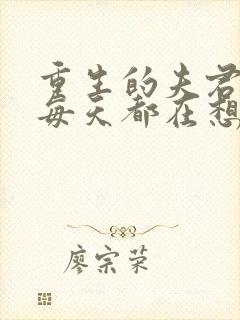 重生的夫君
每天都在想
廖宗荣